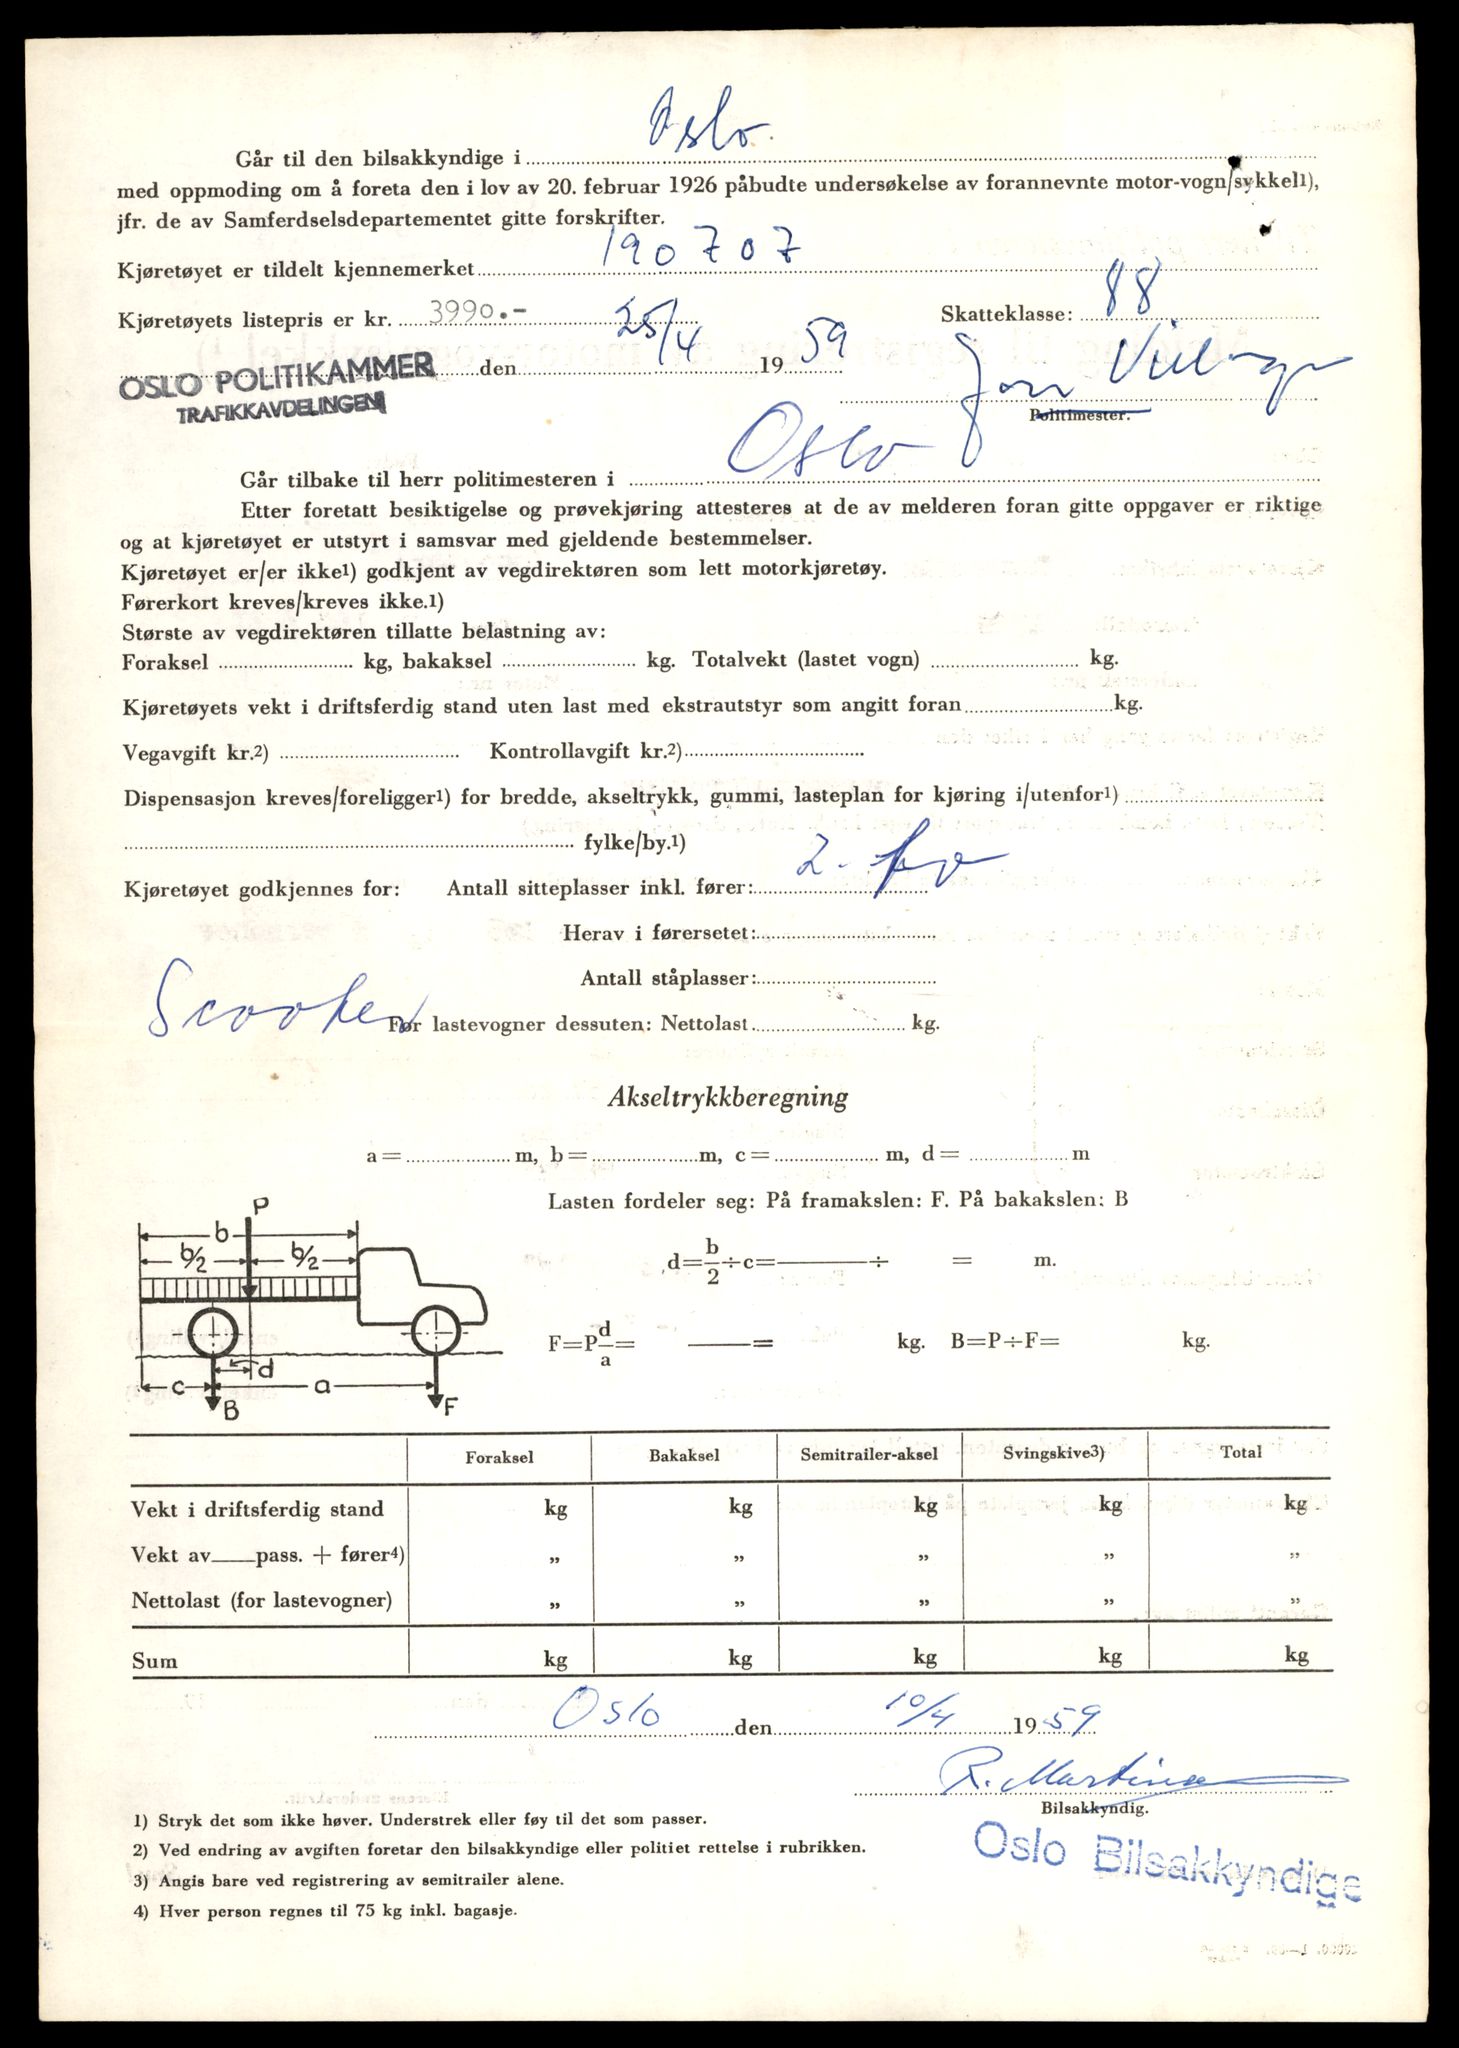 Oslo
Går til den bilsakkyndige i
med oppmoding om å foreta den i lov av 20. februar 1926 påbudte undersøkelse av forannevnte motor-vogn/sykkel1),
jfr. de av Samferdselsdepartementet gitte forskrifter.
Kjøretøyet er tildelt kjennemerket 190707
Kjøretøyets listepris er kr. 3990.- Skatteklasse: 88
OSLO POLITIKAMMER den 25/4 1959
TRAFIKKAVDELINGEN
Politimester.
Går tilbake til herr politimesteren i Oslo
Etter foretatt besiktigelse og prøvekjøring attesteres at de av melderen foran gitte oppgaver er riktige
og at kjøretøyet er utstyrt i samsvar med gjeldende bestemmelser.
Kjøretøyet er/er ikke1) godkjent av vegdirektøren som lett motorkjøretøy.
Førerkort kreves/kreves ikke.1)
Største av vegdirektøren tillatte belastning av:
Foraksel kg, bakaksel kg. Totalvekt (lastet vogn) kg.
Kjøretøyets vekt i driftsferdig stand uten last med ekstrautstyr som angitt foran kg.
Vegavgift kr.2) Kontrollavgift kr.2)
Dispensasjon kreves/foreligger1) for bredde, akseltrykk, gummi, lasteplan for kjøring i/utenfor1)
fylke/by.1)
Kjøretøyet godkjennes for: Antall sitteplasser inkl. fører: 2- to
Herav i førersetet:
Antall ståplasser:
Scooter
For lastevogner dessuten: Nettolast kg.
Akseltrykkberegning
a = m, b = m, c = m, d = m
Lasten fordeler seg: På framakslen: F. På bakakslen: B
d = b/2 ÷ c = ÷ = m.
F = P d/a = = kg. B = P ÷ F = kg.
P
b
b/2 b/2
d
c a
B F
Foraksel Bakaksel Semitrailer-aksel Svingskive3) Total
Vekt i driftsferdig stand kg kg kg kg kg
Vekt av pass. + fører4) „ „ „ „ „
Nettolast (for lastevogner) „ „ „ „ „
Sum kg kg kg kg kg
Oslo den 10/4 1959
R. Martinsen
Bilsakkyndig.
Oslo Bilsakkyndige
1) Stryk det som ikke høver. Understrek eller føy til det som passer.
2) Ved endring av avgiften foretar den bilsakkyndige eller politiet rettelse i rubrikken.
3) Angis bare ved registrering av semitrailer alene.
4) Hver person regnes til 75 kg inkl. bagasje.